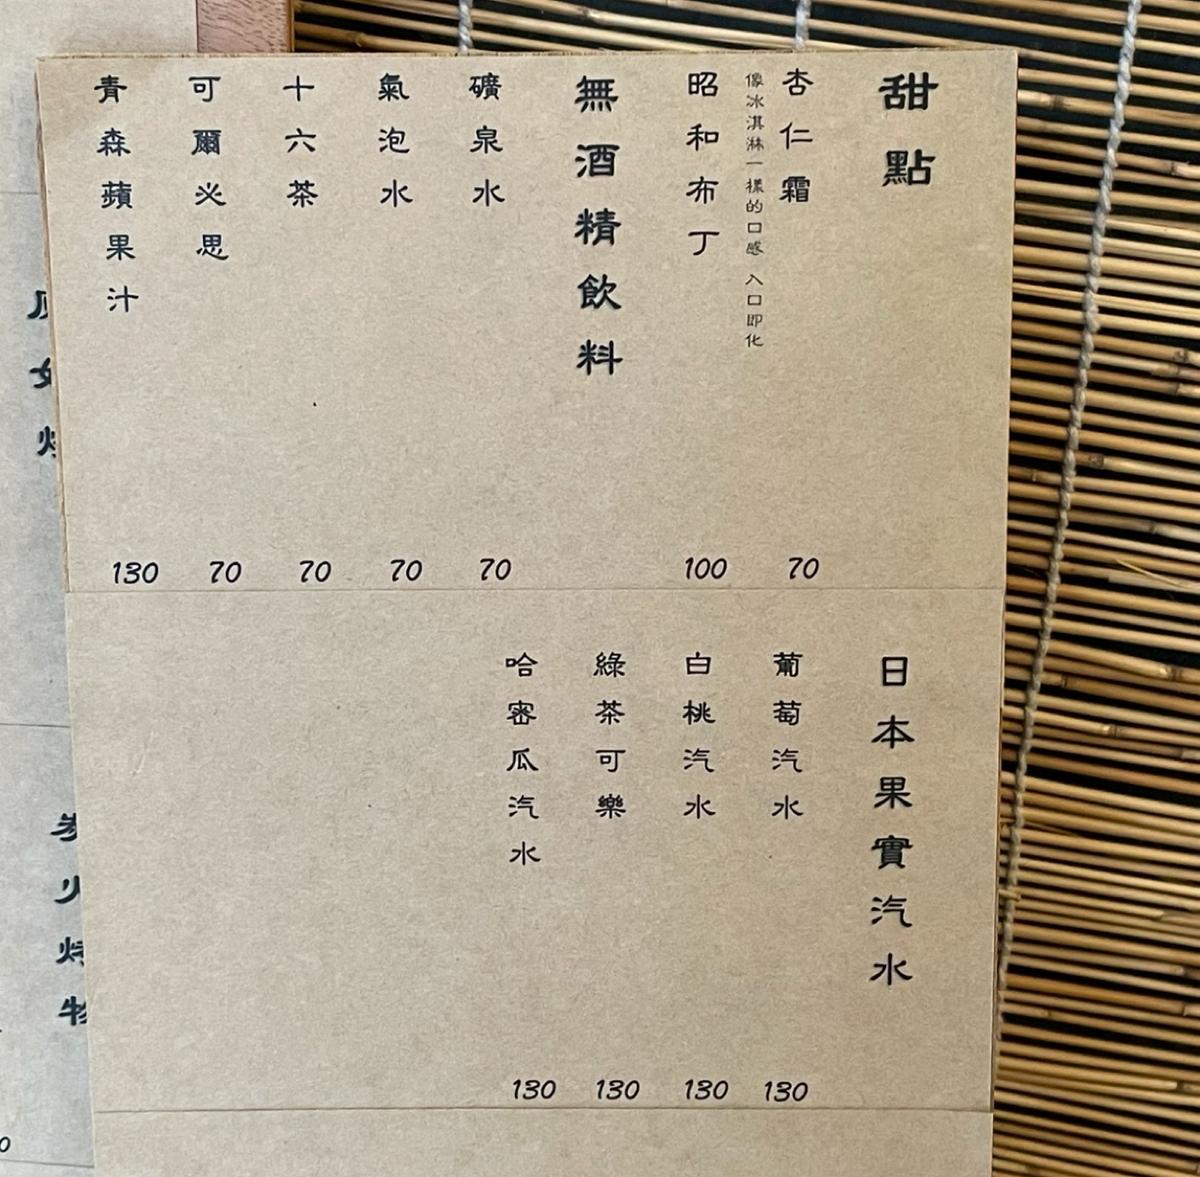 甜點
杏仁霜 70
像冰淇淋一樣的口感 入口即化
昭和布丁 100
無酒精飲料
礦泉水 70
氣泡水 70
十六茶 70
可爾必思 70
青森蘋果汁 130
日本果實汽水
葡萄汽水 130
白桃汽水 130
綠茶可樂 130
哈密瓜汽水 130